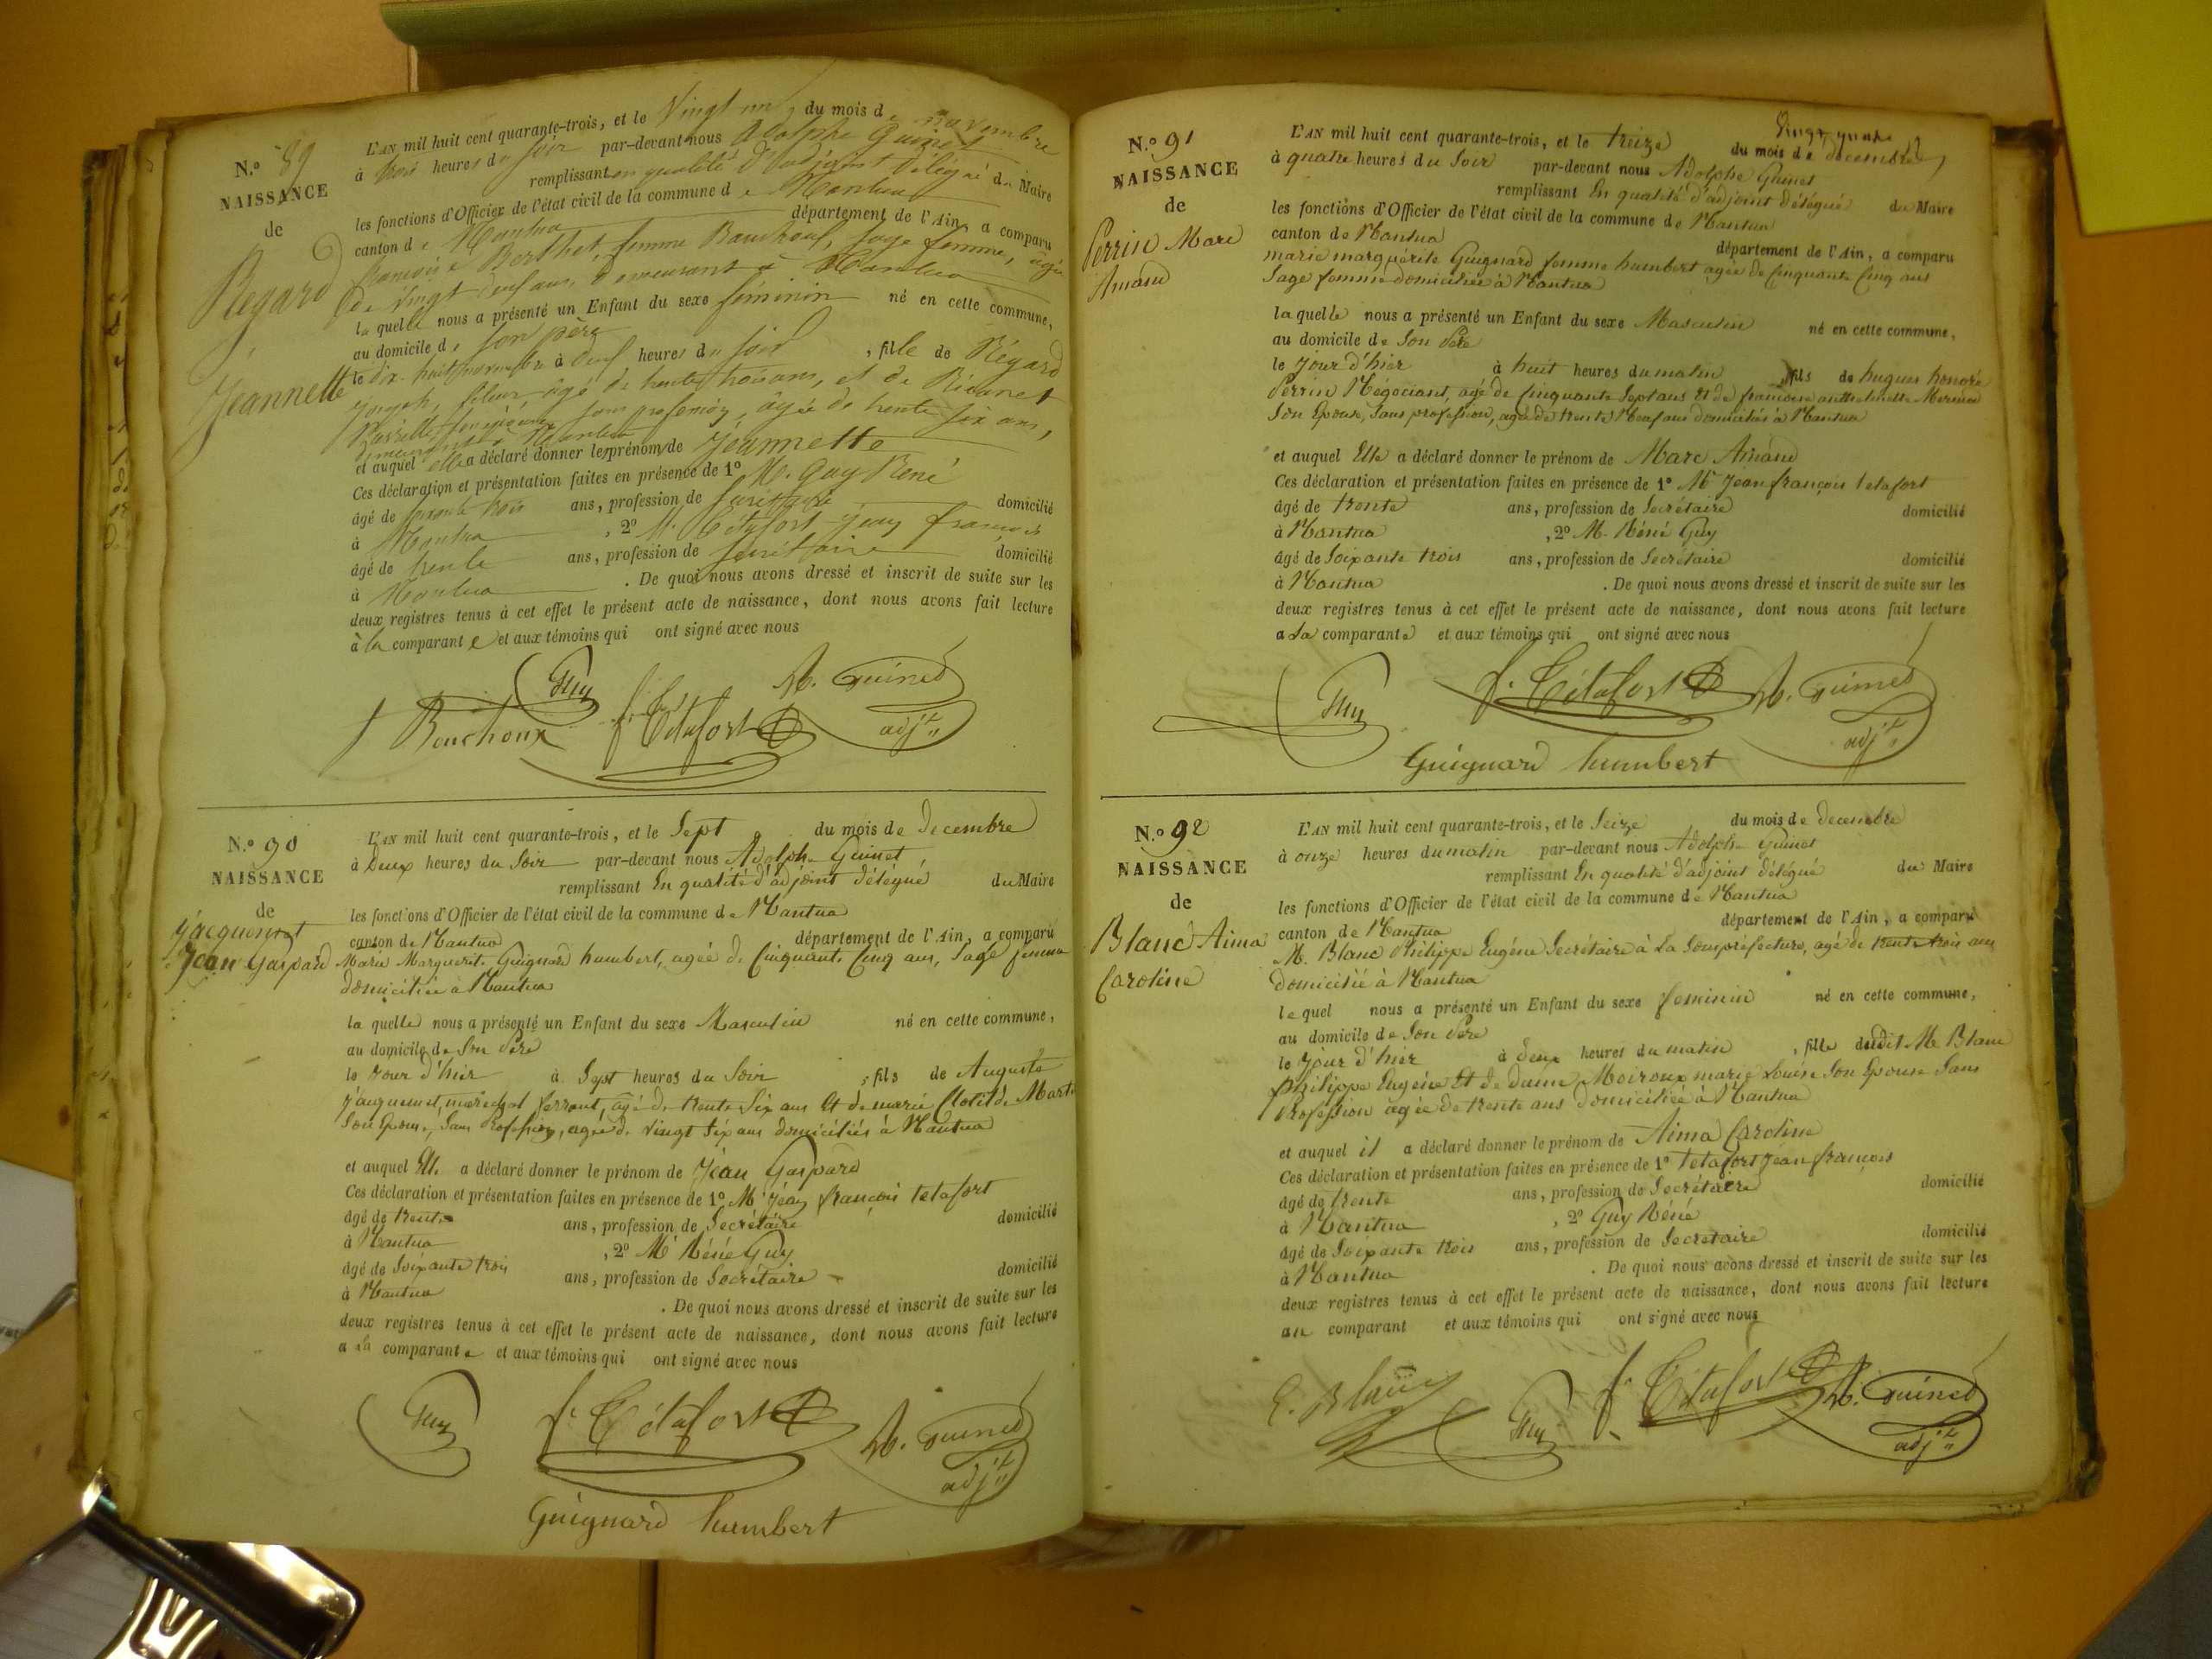 N.° 89
NAISSANCE
de
Régard
Jeannette
L'AN mil huit cent quarante-trois, et le Vingt un, du mois de novembre
à trois heures du soir par-devant nous Adolphe Guinet
remplissant en qualité d'adjoint délégué du Maire
les fonctions d'Officier de l'état civil de la commune de Mantua
canton de Mantua département de l'Ain, a comparu
Berthet, femme sage femme, âgée
de Vingt neuf ans, demeurant à Mantua
la quelle nous a présenté un Enfant du sexe féminin né en cette commune,
au domicile de son père
le dix-huit novembre à neuf heures du soir, fille de Régard
Joseph, âgé de trente trois ans, et de
son épouse, sans profession, âgée de trente six ans,
demeurant à Mantua
et auquel elle a déclaré donner les prénom de Jeannette
Ces déclaration et présentation faites en présence de 1° M. Guy René
âgé de soixante trois ans, profession de secrétaire domicilié
à Mantua, 2° M. Tétafort Jean françois
âgé de trente ans, profession de secrétaire domicilié
à Mantua. De quoi nous avons dressé et inscrit de suite sur les
deux registres tenus à cet effet le présent acte de naissance, dont nous avons fait lecture
à la comparante et aux témoins qui ont signé avec nous
Guy
A. Guinet
adjt
f Bouchoux
f. Tétafort
N.° 90
NAISSANCE
de
Jacquemet
Jean Gaspard
L'AN mil huit cent quarante-trois, et le Sept du mois de decembre
à Deux heures du Soir par-devant nous Adolphe Guinet
remplissant En qualité d'adjoint délégué du Maire
les fonctions d'Officier de l'état civil de la commune de Nantua
canton de Nantua département de l'Ain, a comparu
Marie Marguerite Guignard humbert, agée de Cinquante Cinq ans, Sage femme
domiciliée à Nantua
la quelle nous a présenté un Enfant du sexe Masculin né en cette commune,
au domicile de Son Père
le Jour d'hier à Sept heures du Soir, fils de Auguste
Jacquemet, maréchal ferrant, âgé de trente Six ans Et de marie Clotilde
Son Epouse, Sans Profession, agée de vingt Six ans domiciliés à Nantua
et auquel Elle a déclaré donner le prénom de Jean Gaspard
Ces déclaration et présentation faites en présence de 1° Mr Jean françois tetafort
âgé de trente ans, profession de Secrétaire domicilié
à Nantua, 2° Mr Réné Guy
âgé de Soixante trois ans, profession de Secrétaire domicilié
à Nantua. De quoi nous avons dressé et inscrit de suite sur les
deux registres tenus à cet effet le présent acte de naissance, dont nous avons fait lecture
a la comparante et aux témoins qui ont signé avec nous
Guy
f. Tétafort
A. Guinet
adjt
Guignard humbert
N.° 91
NAISSANCE
de
Perrin Marc
Amand
L'AN mil huit cent quarante-trois, et le treize du mois de decembre
à quatre heures du Soir par-devant nous Adolphe Guinet
remplissant En qualité d'adjoint délégué du Maire
les fonctions d'Officier de l'état civil de la commune de Nantua
canton de Nantua département de l'Ain, a comparu
marie marguérite Guignard femme humbert agée de Cinquante Cinq ans
Sage femme domiciliée à Nantua
la quelle nous a présenté un Enfant du sexe Masculin né en cette commune,
au domicile de Son Père
le Jour d'hier à huit heures du matin fils de hugues honoré
Perrin Négociant, agé de Cinquante Sept ans Et de francoise
Son Epouse, Sans profession, agée de trente Neuf ans domiciliés à Nantua
et auquel Elle a déclaré donner le prénom de Marc Amand
Ces déclaration et présentation faites en présence de 1° Mr Jean françois tetafort
âgé de trente ans, profession de Secrétaire domicilié
à Nantua, 2° M. Réné Guy
âgé de Soixante trois ans, profession de Secrétaire domicilié
à Nantua. De quoi nous avons dressé et inscrit de suite sur les
deux registres tenus à cet effet le présent acte de naissance, dont nous avons fait lecture
a La comparante et aux témoins qui ont signé avec nous
Guy
f. Tétafort
A. Guinet
adjt
Guignard humbert
N.° 92
NAISSANCE
de
Blanc Aima
Caroline
L'AN mil huit cent quarante-trois, et le Seize du mois de decembre
à onze heures du matin par-devant nous Adolphe Guinet
remplissant En qualité d'adjoint délégué du Maire
les fonctions d'Officier de l'état civil de la commune de Nantua
canton de Nantua département de l'Ain, a comparu
M. Blanc Philippe Eugéne Secrétaire à La Souspréfecture, agé de trente trois ans
domicilié à Nantua
le quel nous a présenté un Enfant du sexe feminin né en cette commune,
au domicile de Son Père
le Jour d'hier à deux heures du matin, fille dudit M. Blanc
Philippe Eugéne Et de dame Moiroux marie Louise Son Epouse Sans
Profession agée de trente ans domiciliée à Nantua
et auquel il a déclaré donner le prénom de Aima Caroline
Ces déclaration et présentation faites en présence de 1° Tetafort Jean françois
âgé de trente ans, profession de Secrétaire domicilié
à Nantua, 2° Guy Réné
âgé de Soixante trois ans, profession de Secretaire domicilié
à Nantua. De quoi nous avons dressé et inscrit de suite sur les
deux registres tenus à cet effet le présent acte de naissance, dont nous avons fait lecture
au comparant et aux témoins qui ont signé avec nous
E. Blanc
Guy
f. Tétafort
A. Guinet
adjt